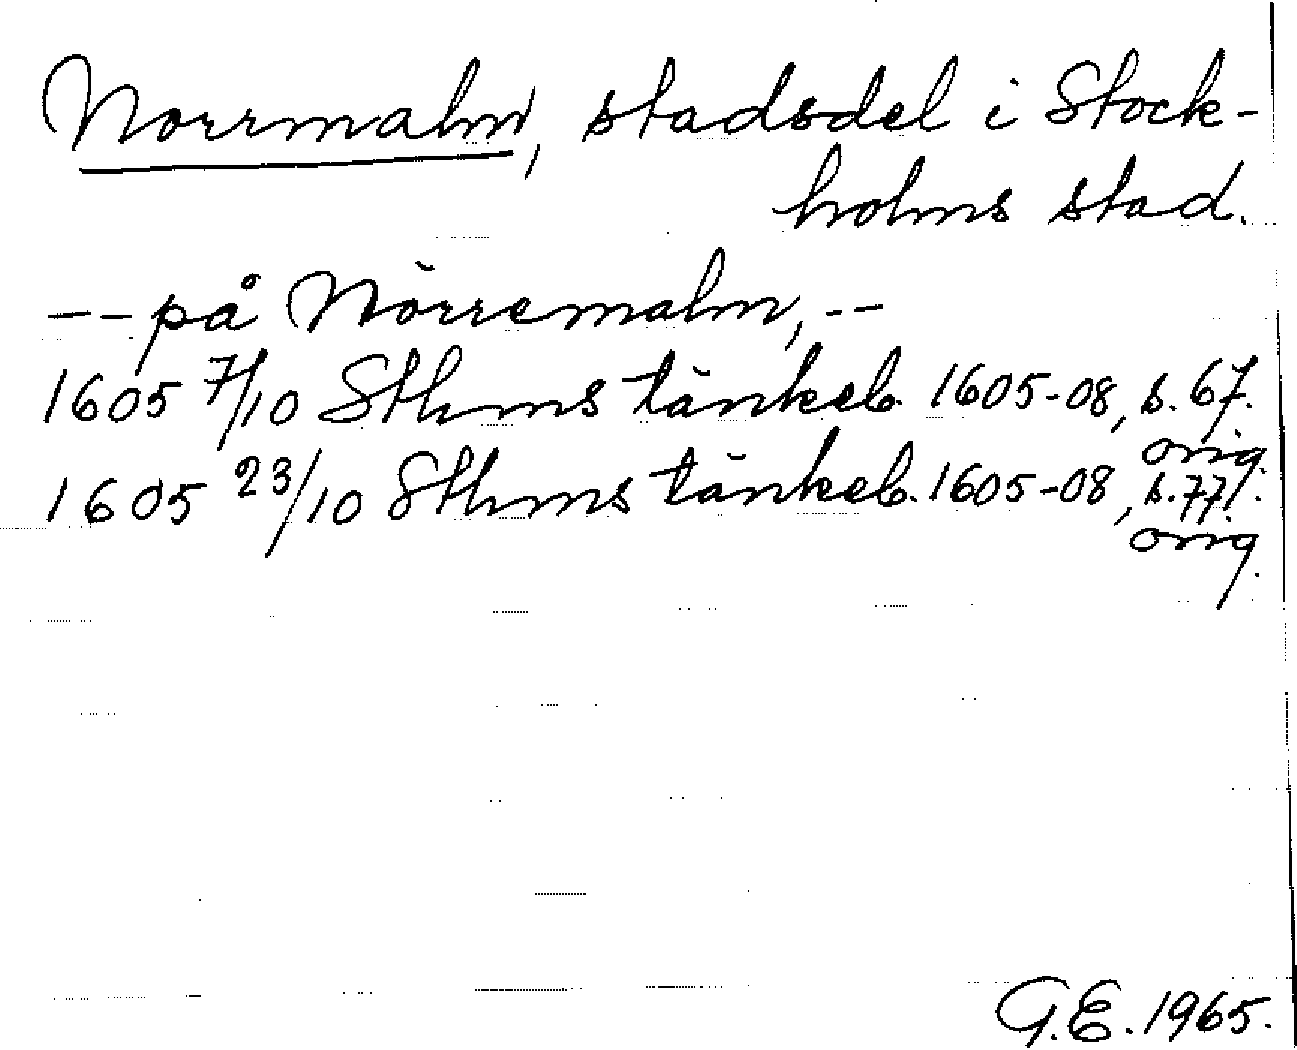 Norrmalm, stadsdel i Stock-
holms stad.
-- på Nörremalm, --
1605 7/10 Sthms tänkeb. 1605-08, s. 67.
orig.
1605 23/10 Sthms tänkeb. 1605-08, s. 77.
orig.
G.E. 1965.